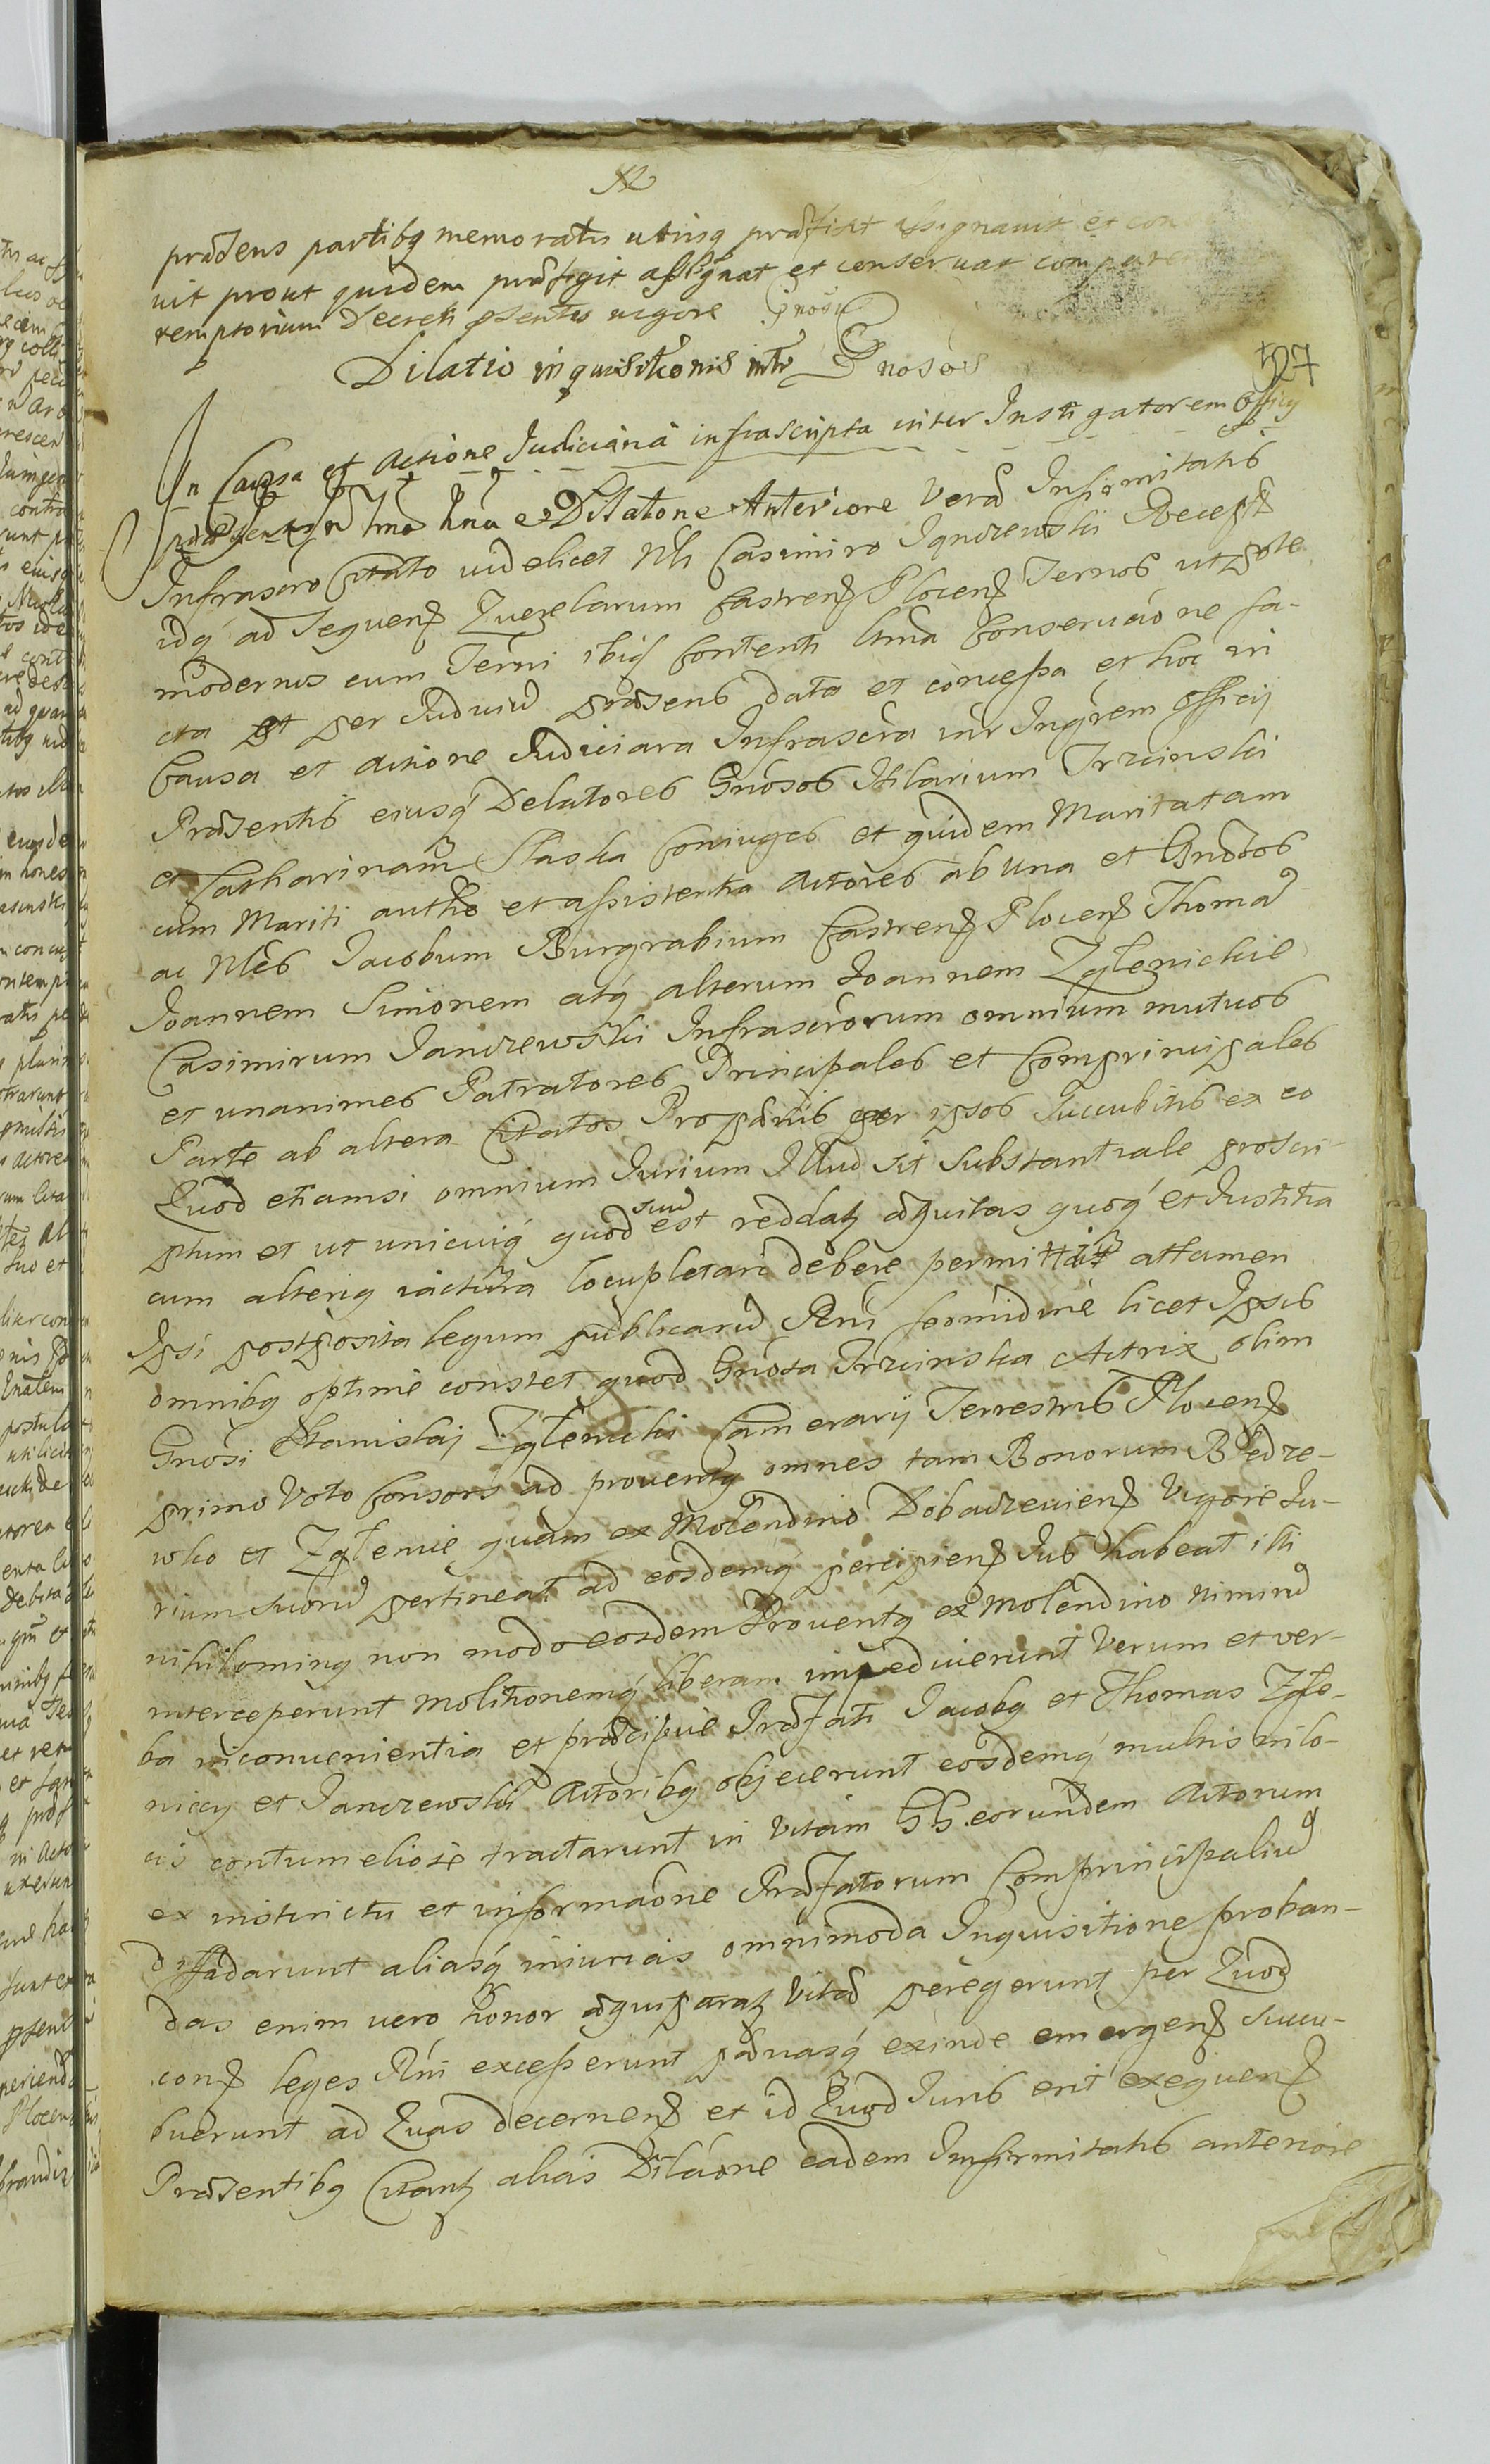 præsens partibq memoratis utrisq præfixit assignavit et con
vit prout quidem præfigit assignat et conservat compare
remptorium Decreti psentis vigore
Dilatio inquisitionis intr Gnosos
527
In Causa et Actione Judiciaria infrascripta inter Instigatorem Officij
Dilatone Anteriore Veræ Infirmitatis
Infrascro Citato videlicet Nli Casimiro Janczewski Recept
idq ad sequens Querelarum Castrens Plocens Ternos utpote
modernus cum Terni ibiq Contenti Conservaone fa-
cta et per Judiciu præsens data et concessa et hoc in
Causa et actione Judiciara Infrascra intr Ingrem Officij
Præsentis eiusq Delatores Gnosos Hilarium Trzcinski
et Catharinam Coniuges et quidem Maritatam
cum Mariti autho et assistentia Actores ab una et Gnosos
ac Nles Jacobum Burgrabium Castrens Plocens Thomã
Joannem Simonem atq alterum Joannem Zglenickie
Casimirum Janczewski Infrascrorum omnium mutuos
et unanimes Patratores Principales et Comprincipales
Parte ab altera Citatos Pro pænis per ipsos Succubitis ex eo
Quod etiamsi omnium Jurium Illud sit Substantiale proscri-
ptum et ut unicuiq quod suũ est reddatz æquitas quoq et Justitia
cum alteriq iactura locupletari debere permittat attamen
Ipsi postposita legum publicarũ Rni formidine licet Ipsis
omnibq optime constet quod Gnosa Trzcinska Actrix olim
Gnosi Stanislaj Zglenicki Camerarij Terrestris Plocens
primo Voto Consors ad proventq omnes tam Bonorum Będze-
wko et Zglenie quam ex Molendino Dobaczeviens Vigore Ju-
rium suorũ pertineat ad eosdemq percipiens Jus habeat illi
nihilominq non modo eosdem Proventq ex Molendino nimirũ
interceperunt molitionemq liberam impediverunt Verum et ver-
ba inconvenientia et præcipue Præfati Jacobq et Thomas Zgle-
niccy et Janczewski Actoribq objecerunt eosdemq multis in lo-
cis contumeliose tractarunt in Vitam GG. eorundem Actorum
ex instinctu et informaone Præfatorum Comprincipaliũ
diffidarunt aliasq iniurias omnimoda Inquisitione proban-
das enim vero honor æquiparatz Vitæ peregerunt per Quod
cons leges Rni excesserunt pænasq exinde emergens Succu-
buerunt ad Quas decernens et id Quod Juris erit exequens
Præsentibq Citantz alias Dilaone eadem Infirmitatis anteriore